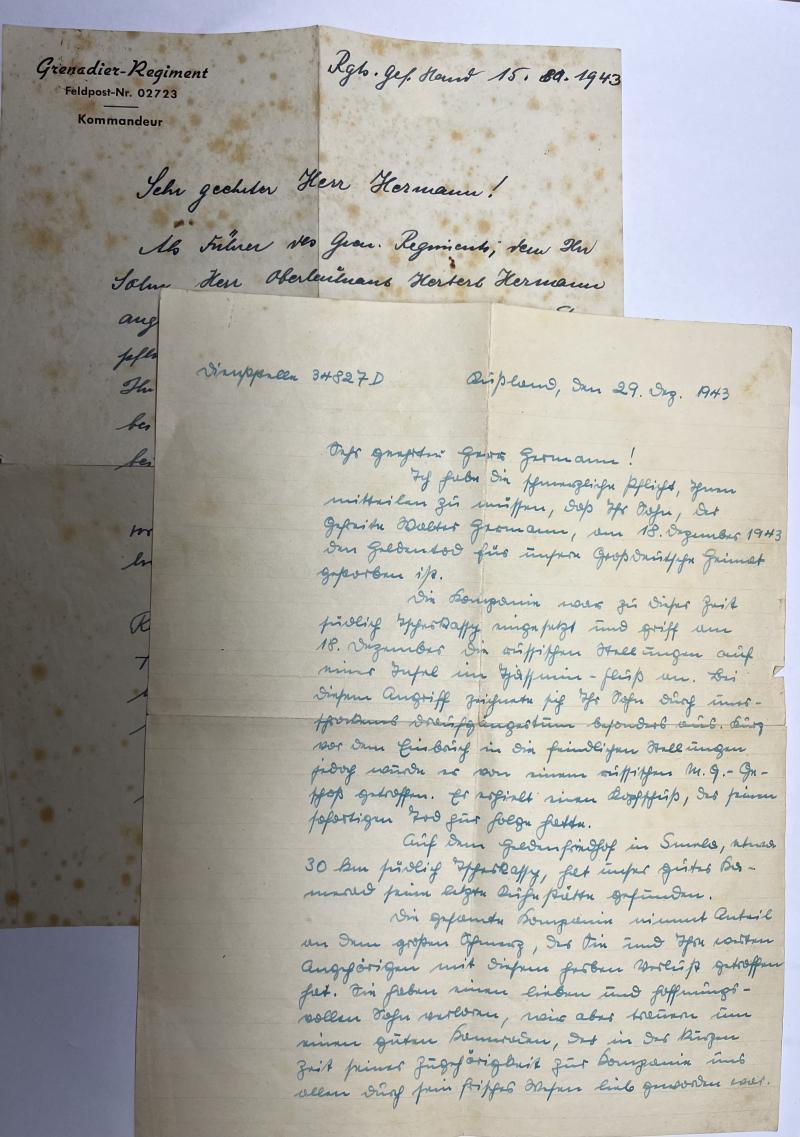 Grenadier-Regiment
Feldpost-Nr. 02723
Kommandeur
Rgts. gef. Stand 15. 1943
Sehr geehrter Herr Hermann!
Als Führer des Gren. Regiments, dem Ihr
Sohn Herr Oberleutnant Herbert Hermann
ang
Ihr
bei
bei
Dienststelle 34827D
Rußland, den 29. Dez. 1943
Sehr geehrter Herr Hermann!
Ich habe die schmerzliche Pflicht, Ihnen
mitteilen zu müssen, daß Ihr Sohn, der
Gefreite Walter Hermann, am 18. Dezember 1943
den Heldentod für unsere Großdeutsche Heimat
gestorben ist.
Die Kompanie war zu dieser Zeit
südlich Tscherkassy eingesetzt und griff am
18. Dezember die russischen Stellungen auf
einer Insel im Tjassmin-Fluß an. Bei
diesem Angriff zeichnete sich Ihr Sohn durch uner-
schrockenes Draufgängertum besonders aus. Kurz
vor dem Einbruch in die feindlichen Stellungen
jedoch wurde er von einem russischen M.G.-Ge-
schoß getroffen. Er erhielt einen Kopfschuß, der seinen
sofortigen Tod zur Folge hatte.
Auf dem Heldenfriedhof in Smela, etwa
30 km südlich Tscherkassy, hat unser guter Ka-
merad seine letzte Ruhestätte gefunden.
Die gesamte Kompanie nimmt Anteil
an dem großen Schmerz, der Sie und Ihre werten
Angehörigen mit diesem herben Verlust getroffen
hat. Sie haben einen lieben und hoffnungs-
vollen Sohn verloren, wir aber trauern um
einen guten Kameraden, der in der kurzen
Zeit seiner Zugehörigkeit zur Kompanie uns
allen durch sein frisches Wesen lieb geworden war.